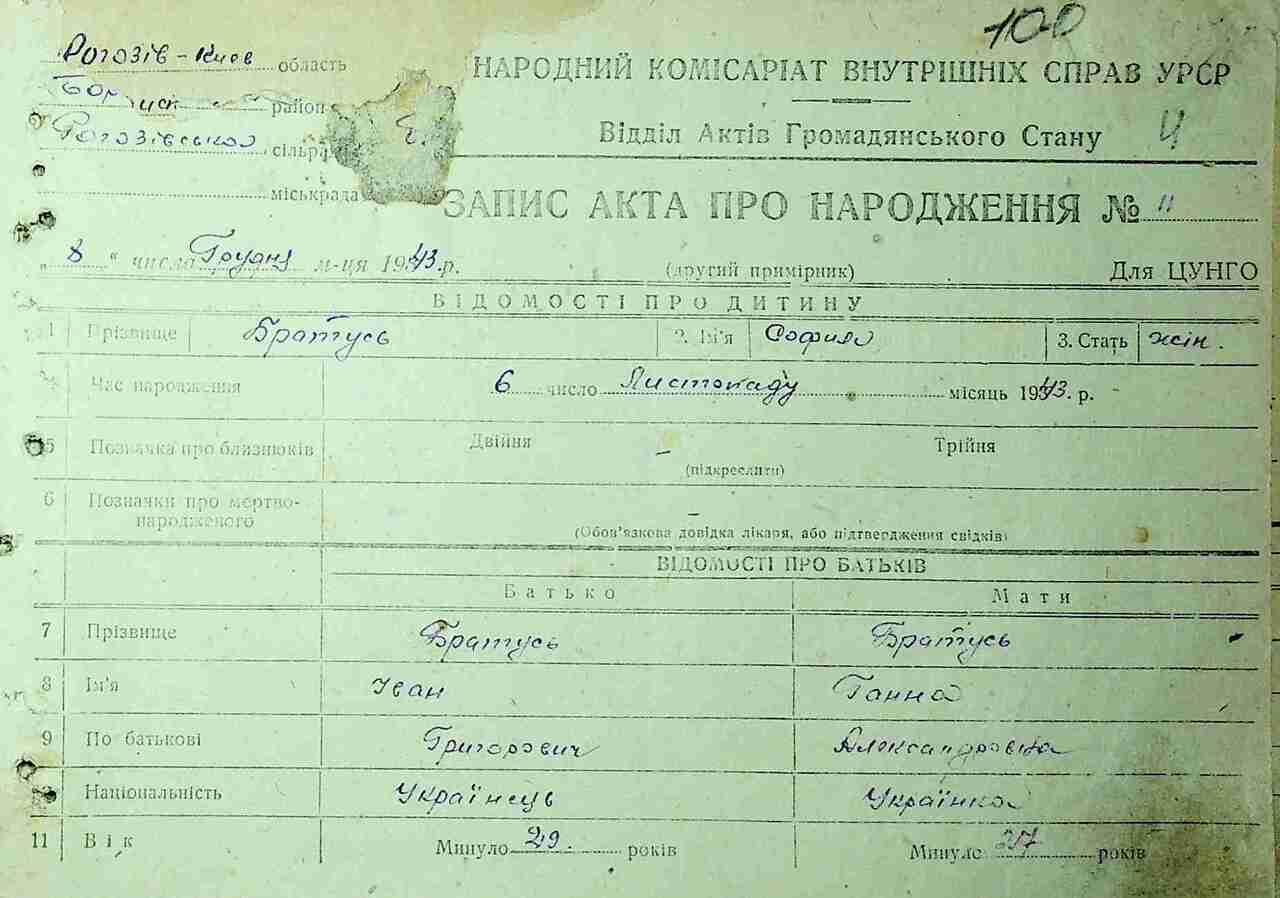 100
Рогозів - Киев область
Бор район
Рогозівської сільр
міськрада
НАРОДНИЙ КОМІСАРІАТ ВНУТРІШНІХ СПРАВ УРСР
Відділ Актів Громадянського Стану
ЗАПИС АКТА ПРО НАРОДЖЕННЯ № 11
„ 8 “ числа Грудня м-ця 1943 р. (другий примірник) Для ЦУНГО
ВІДОМОСТІ ПРО ДИТИНУ
1 Прізвище Братусь 2. Ім'я София 3. Стать жін.
4 Час народження 6 число Листопаду місяць 1943. р.
5 Позначка про близнюків Двійня — Трійня
(підкреслити)
6 Позначки про мертво-
народженого
(Обов'язкова довідка лікаря, або підтвердження свідків)
ВІДОМОСТІ ПРО БАТЬКІВ
Батько Мати
7 Прізвище Братусь Братусь
8 Ім'я Іван Ганна
9 По батькові Григорович Александровна
10 Національність Українець Українка
11 Вік Минуло 29. років Минуло 27 років